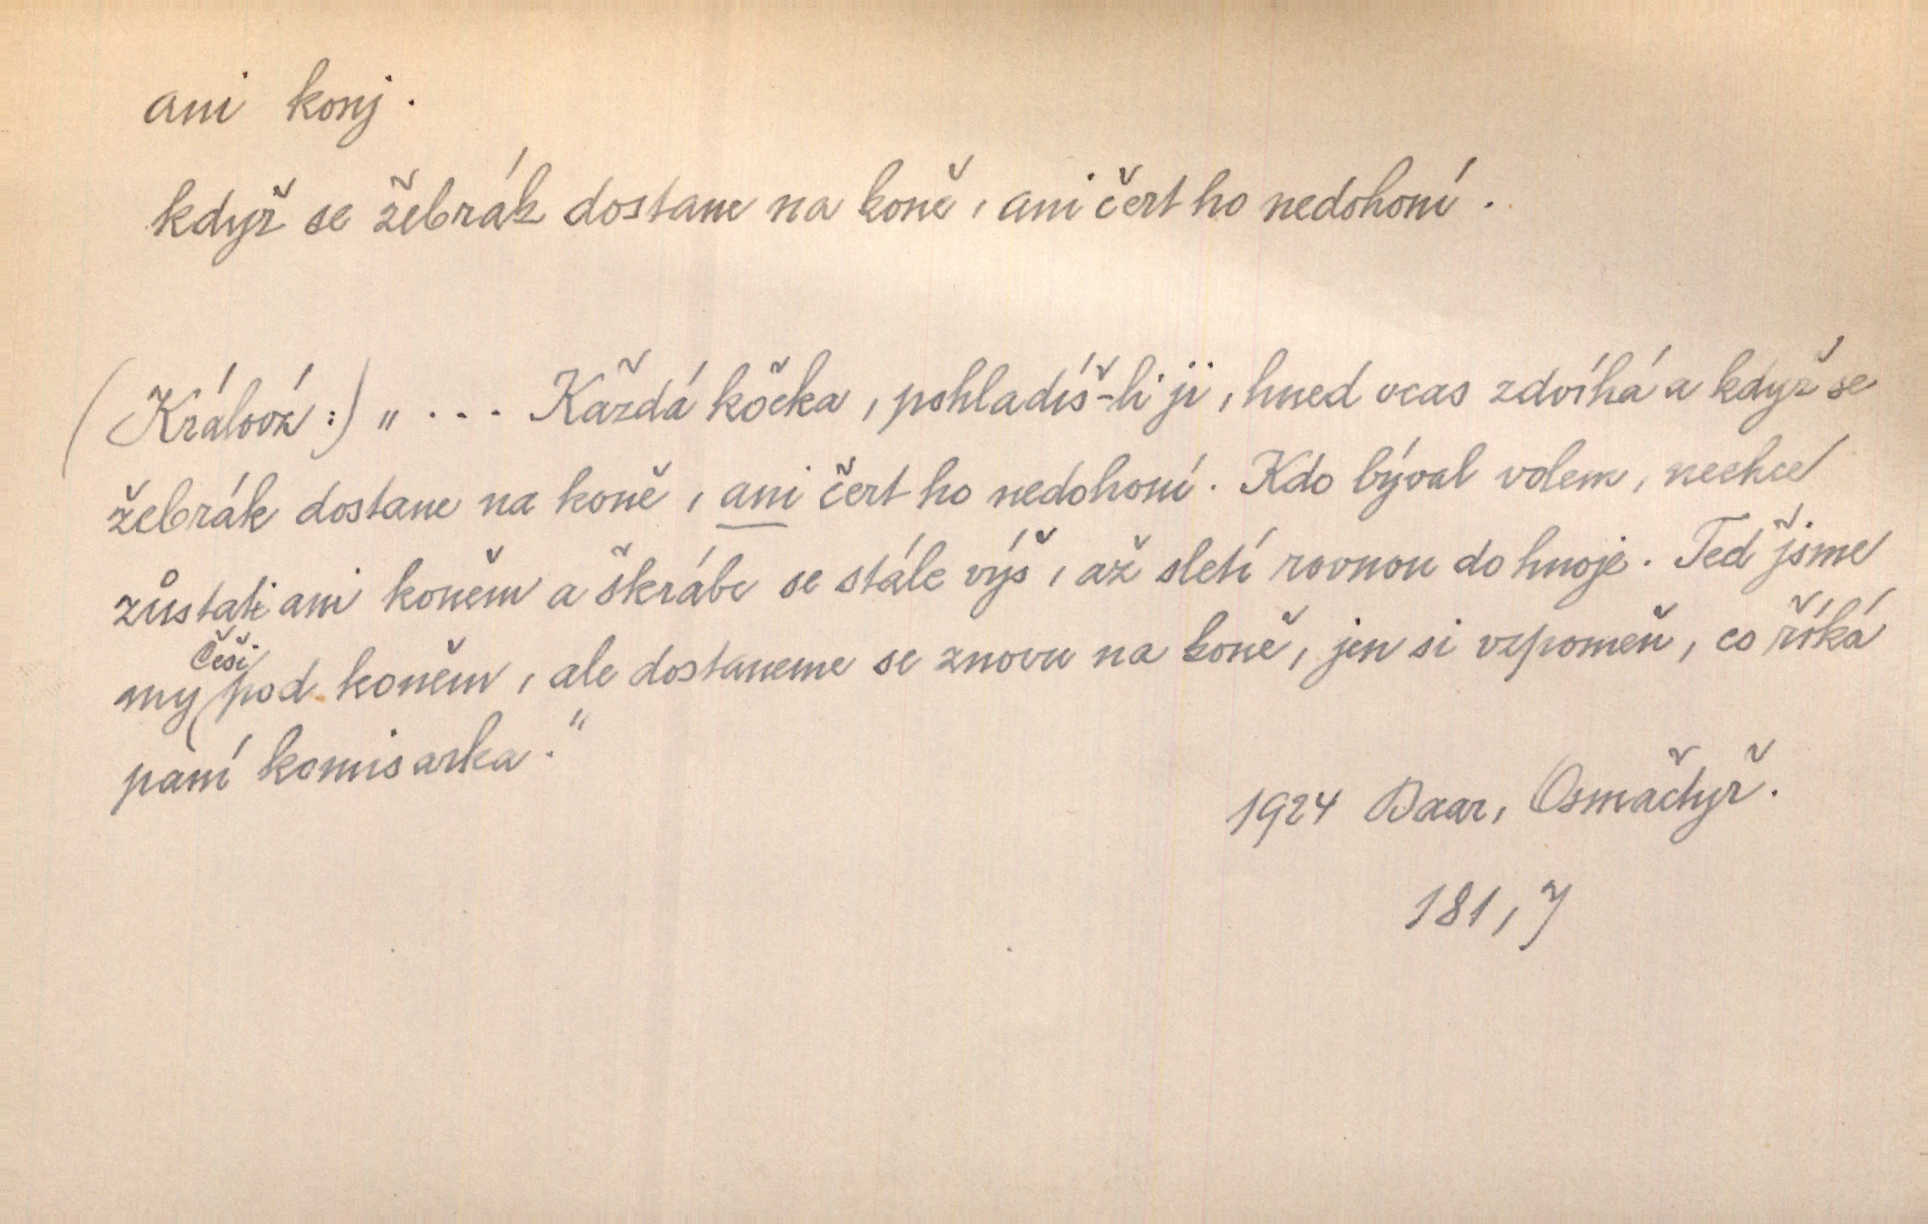 ani konj.
když se žebrák dostane na koně, ani čert ho nedohoní.
(Králová:) „... Každá kočka, pohladíš-li ji, hned ocas zdvíhá a když se
žebrák dostane na koně, ani čert ho nedohoní. Kdo býval volem, nechce
zůstati ani koněm a škrábe se stále výš, až sletí rovnou do hnoje. Teď jsme
my Češi pod koněm, ale dostaneme se znovu na koně, jen si vzpomeň, co říká
paní komisarka."
1924 Baar, Osmačtyř.
181,7